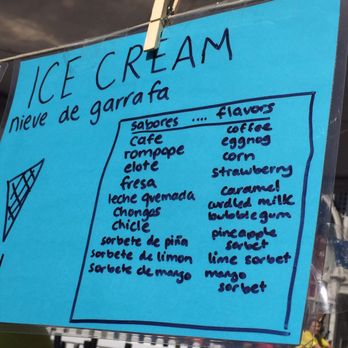 ICE CREAM
nieve de garrafa
sabores .... flavors
cafe coffee
rompope eggnog
elote corn
fresa strawberry
leche quemada caramel
chongos curdled milk
chicle bubblegum
sorbete de piña pineapple sorbet
sorbete de limon lime sorbet
sorbete de mango mango sorbet